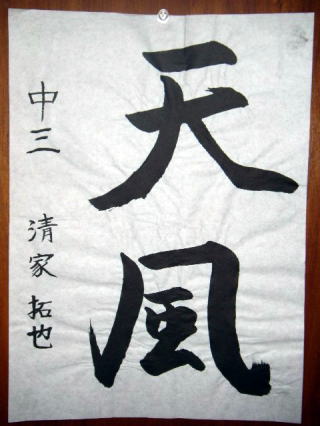 天風
中三 清家拓也